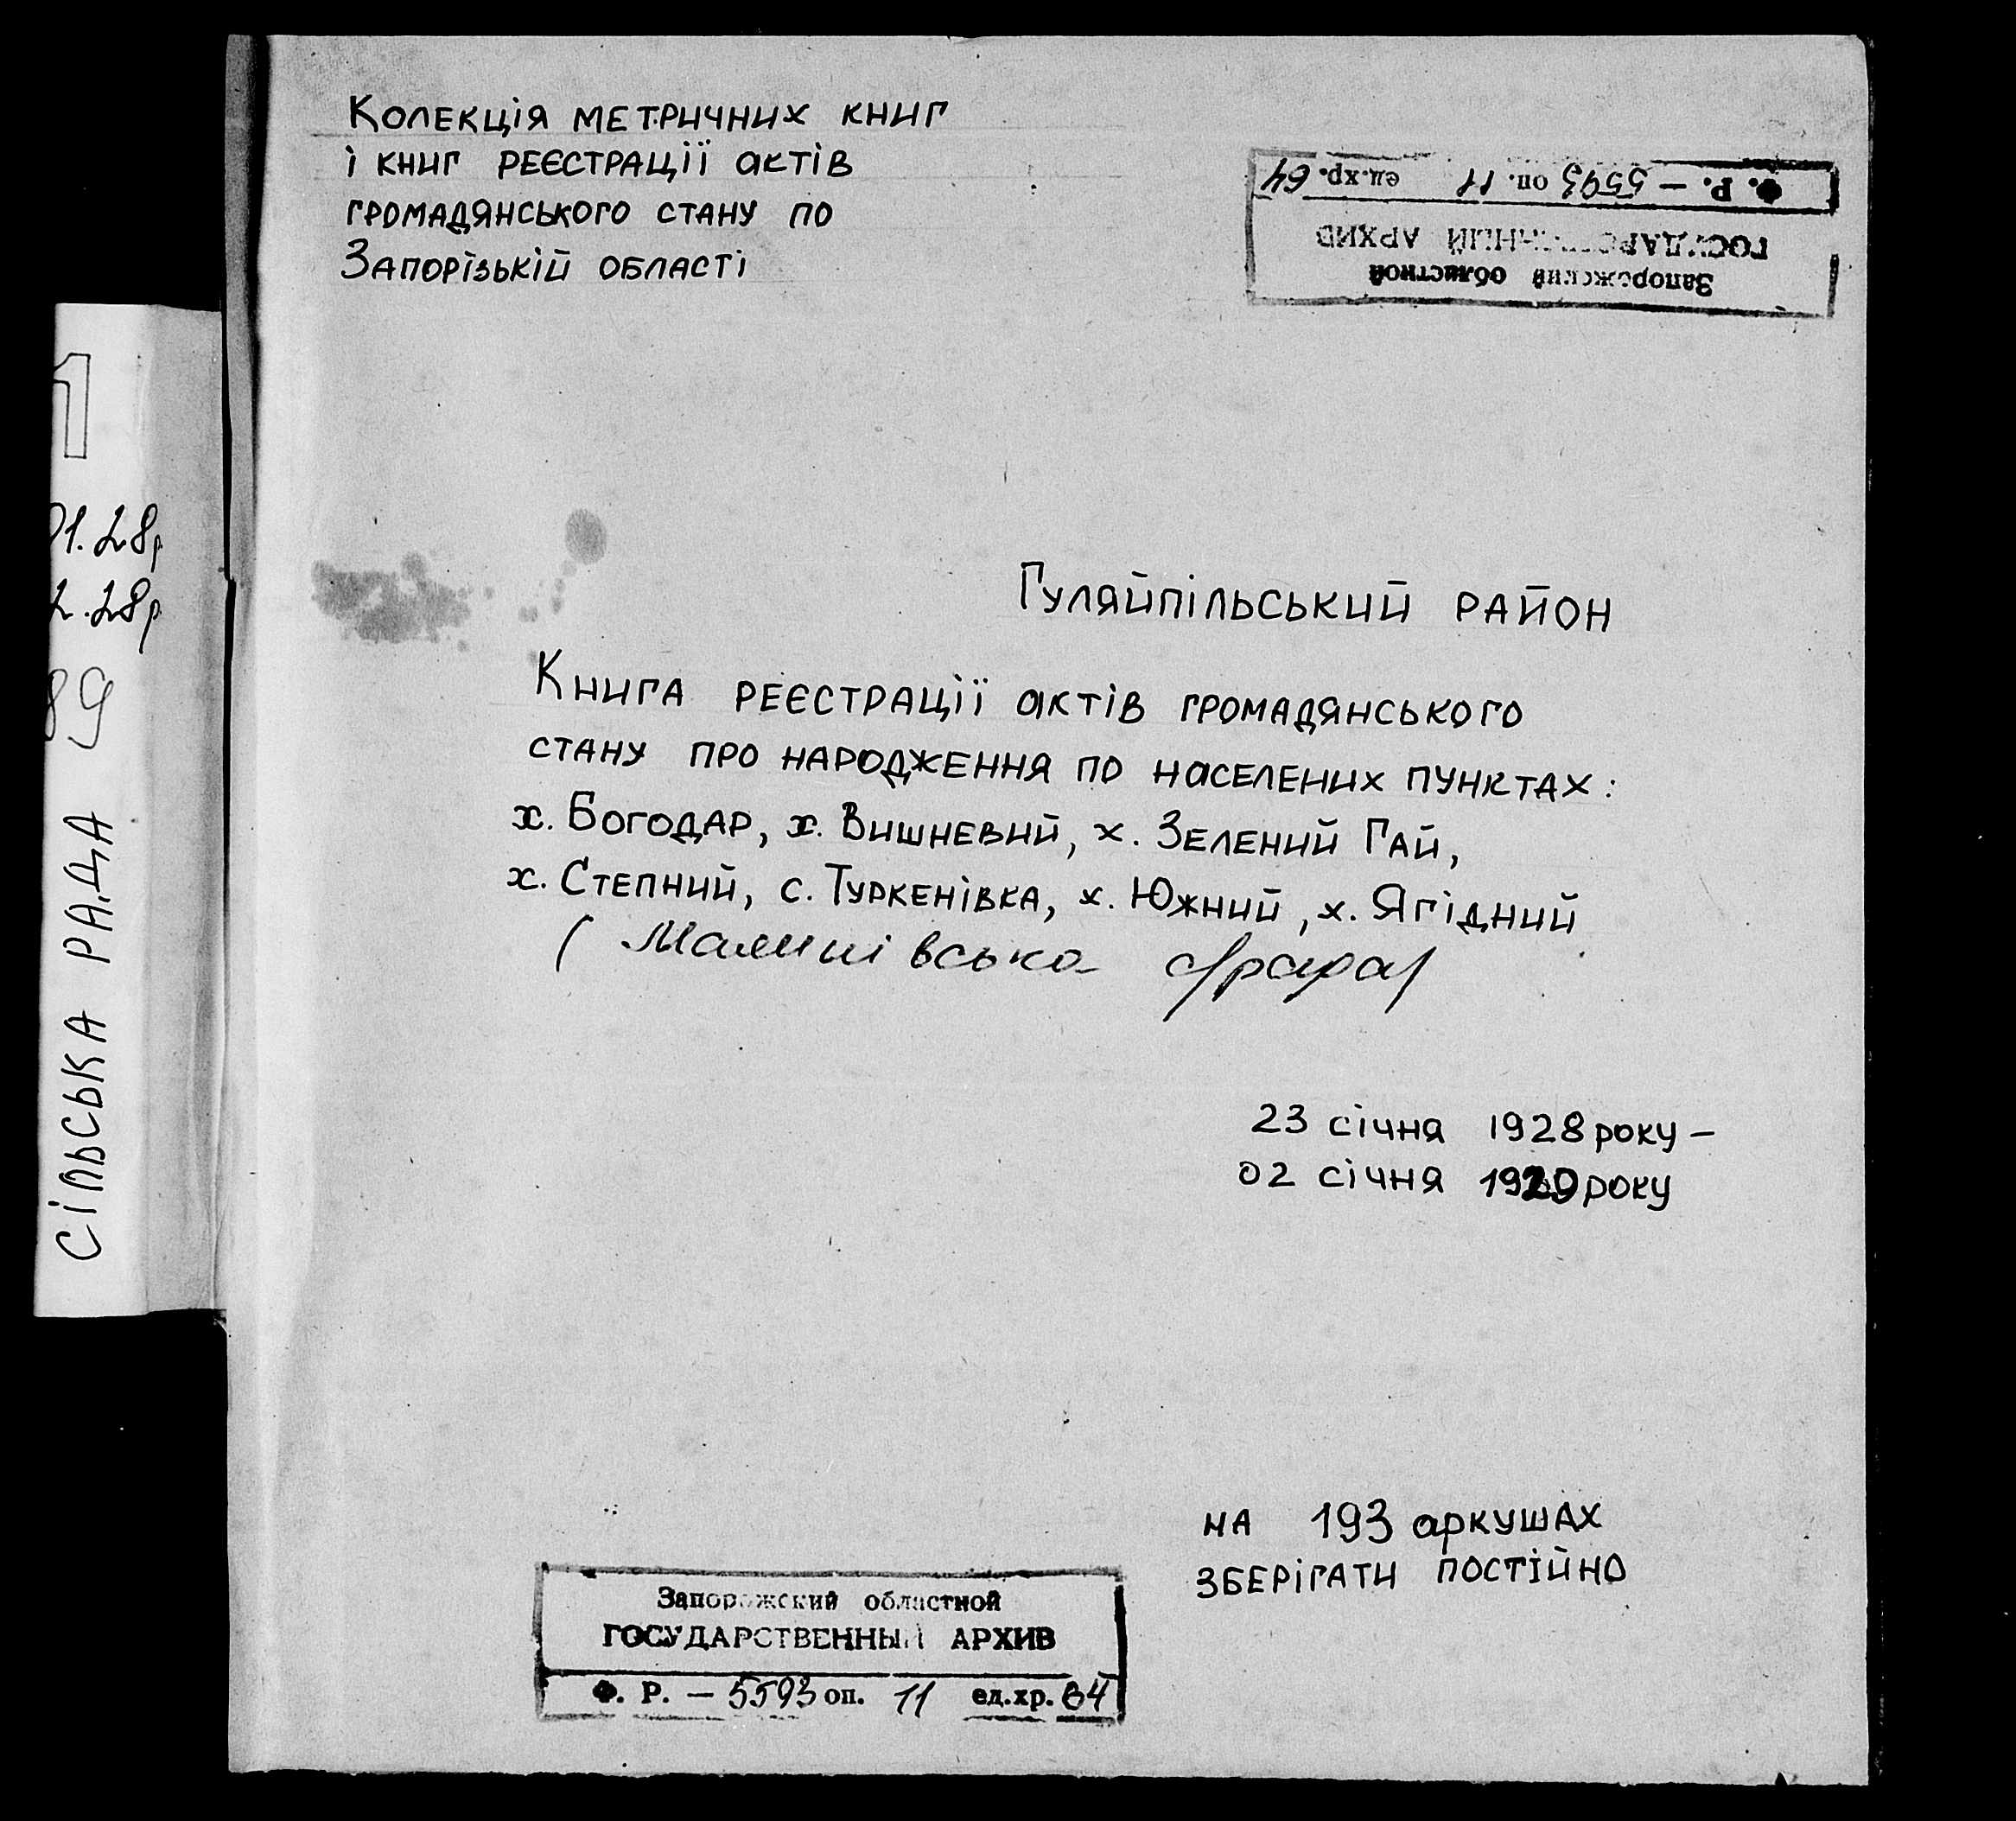 Колекція метричних книг
і книг реєстрації актів
громадянського стану по
Запорізькій області
Ф. Р. — 5593 оп. 11 ед.хр. 64
ГОСУДАРСТВЕННЫЙ АРХИВ
Запорожский областной
1
01.28р
2.28р
89
СІЛЬСЬКА РАДА
Гуляйпільський район
Книга реєстрації актів громадянського
стану про народження по населених пунктах:
х. Богодар, х. Вишневий, х. Зелений Гай,
х. Степний, с. Туркенівка, х. Южний, х. Ягідний
(Малинівська с/рада)
23 січня 1928 року –
02 січня 1929 року
на 193 аркушах
зберігати постійно
Запорожский областной
ГОСУДАРСТВЕННЫЙ АРХИВ
Ф. Р. — 5593 оп. 11 ед.хр. 64